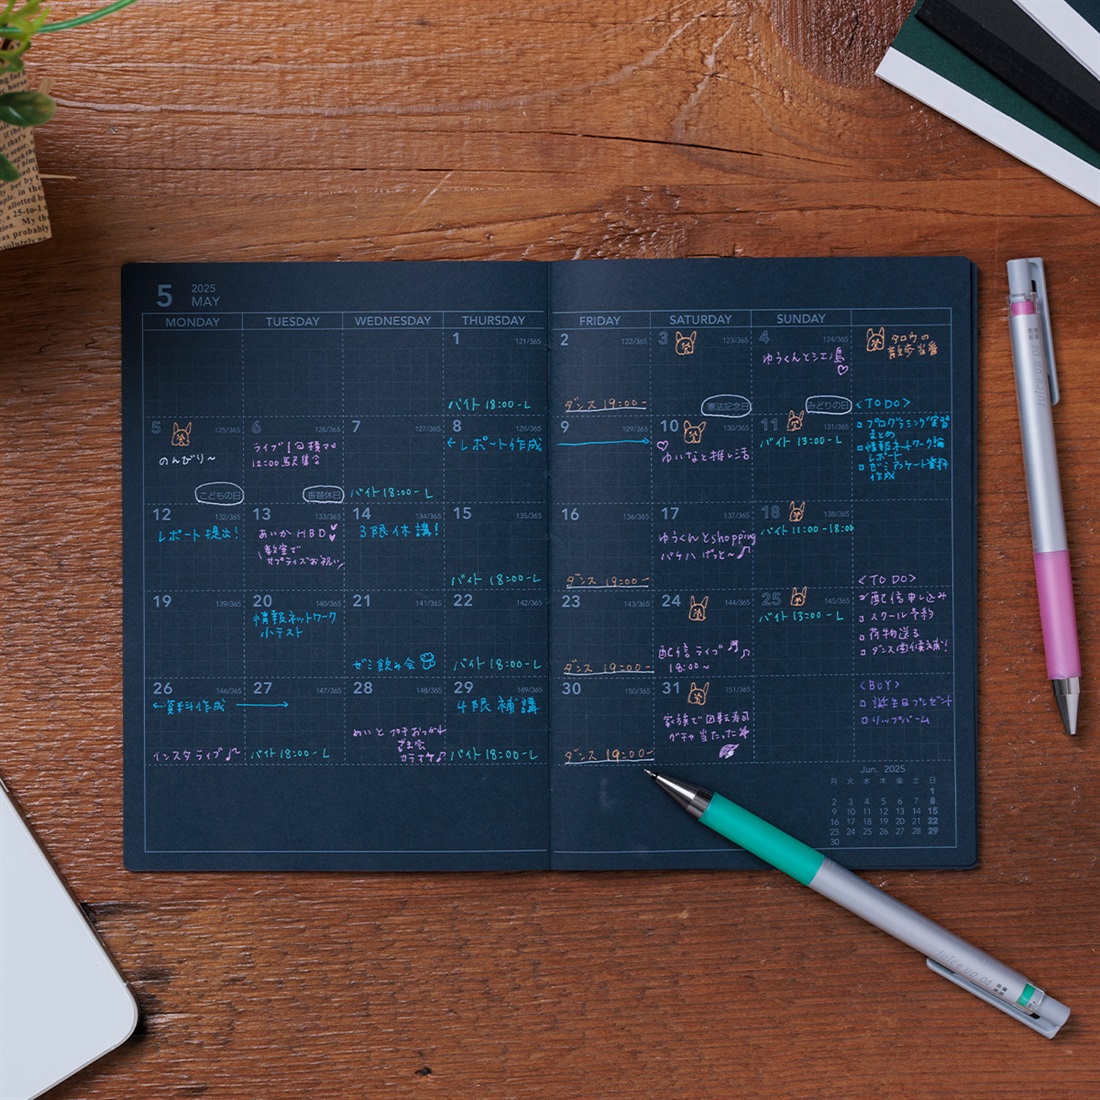 5
2025
MAY
MONDAY
TUESDAY
WEDNESDAY
THURSDAY
FRIDAY
SATURDAY
SUNDAY
1 121/365
バイト 18:00-L
2 122/365
ダンス 19:00-
3 123/365
憲法記念日
4 124/365
ゆうくんと江ノ島
みどりの日
タロウの
散歩当番
<TO DO>
プログラミング演習
まとめ
情報ネットワーク論
レポート
ゼミ アンケート資料
作成
5 125/365
のんびり~
こどもの日
6 126/365
ライブ!@横アリ
12:00 駅集合
振替休日
7 127/365
バイト 18:00-L
8 128/365
←レポート作成
9 129/365
10 130/365
ゆいなと推し活
11 131/365
バイト 13:00-L
12 132/365
レポート提出!
13 133/365
あいか HBD
教室で
サプライズお祝い
14 134/365
3限休講!
15 135/365
バイト 18:00-L
16 136/365
ダンス 19:00-
17 137/365
ゆうくんとshopping
18 138/365
バイト 11:00-18:00
<TO DO>
配信申し込み
スクール予約
荷物送る
ダンス曲候補!
19 139/365
20 140/365
情報ネットワーク
小テスト
21 141/365
ゼミ飲み会
22 142/365
バイト 18:00-L
23 143/365
ダンス 19:00-
24 144/365
配信ライブ
18:00~
25 145/365
バイト 13:00-L
26 146/365
←資料作成
インスタライブ
27 147/365
バイト 18:00-L
28 148/365
めいと
カラオケ
29 149/365
4限補講
バイト 18:00-L
30 150/365
ダンス 19:00-
31 151/365
家族で回転寿司
ガチャ当たった
<BUY>
誕生日プレゼント
リップバーム
Jun. 2025
月 火 水 木 金 土 日
1
2 3 4 5 6 7 8
9 10 11 12 13 14 15
16 17 18 19 20 21 22
23 24 25 26 27 28 29
30
juice up 04